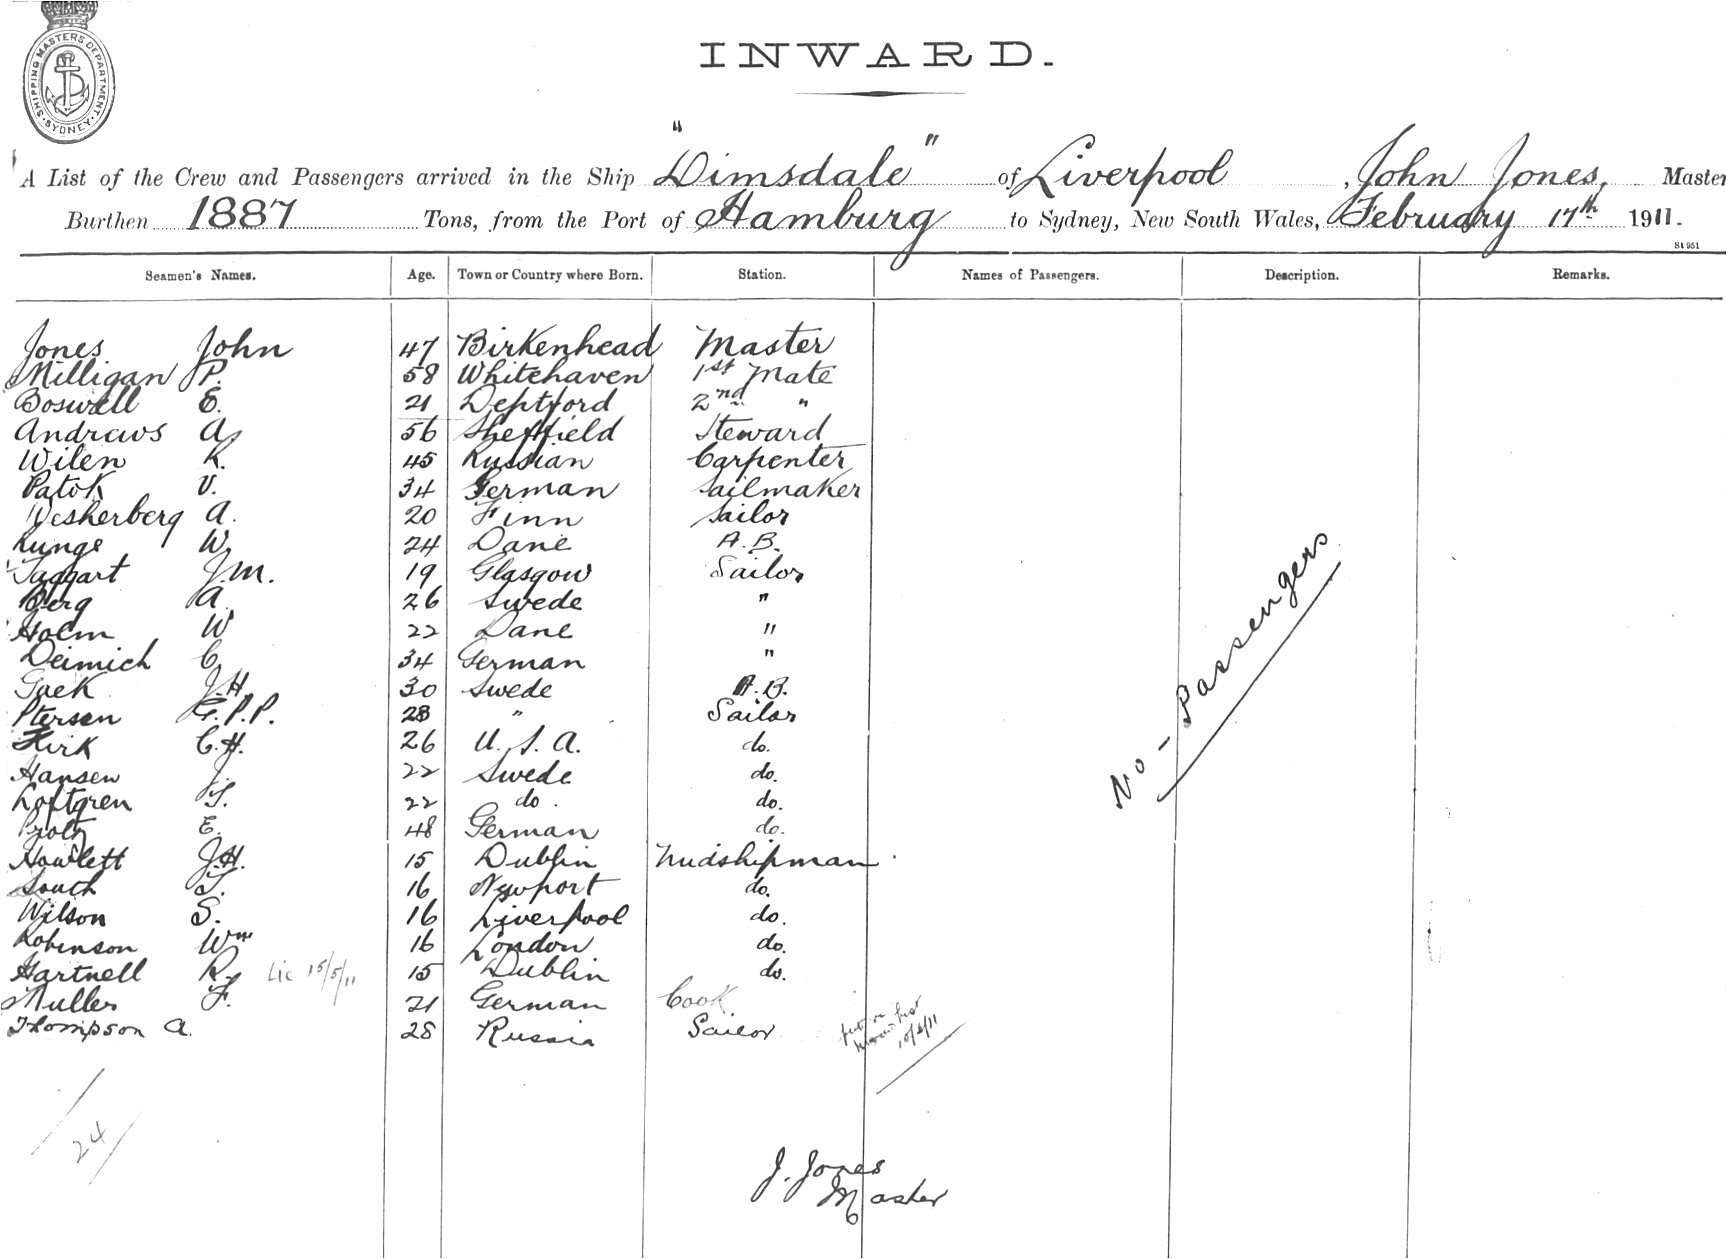 SHIPPING MASTERS DEPARTMENT. SYDNEY
INWARD.
A List of the Crew and Passengers arrived in the Ship "Dimsdale" of Liverpool, John Jones, Master
Burthen 1887 Tons, from the Port of Hamburg to Sydney, New South Wales, February 17th 1911.
St 951
Seamen's Names. Age. Town or Country where Born. Station. Names of Passengers. Description. Remarks.
Jones John 47 Birkenhead Master
Milligan P. 58 Whitehaven 1st Mate
Boswell E. 21 Deptford 2nd "
Andrews A. 56 Sheffield Steward
Wilen K. 45 Russian Carpenter
Patok V. 34 German Sailmaker
Wesherberg A. 20 Finn Sailor
Runge W. 24 Dane A.B.
Taggart J.M. 19 Glasgow Sailor
Berg A. 26 Swede "
Holm W 22 Dane "
Deimich C. 34 German "
Gaek J.H. 30 Swede A.B.
Ptersen G.P.P. 28 " Sailor
Kirk C.H. 26 U.S.A. do.
Hansen J. 22 Swede do.
Loftgren S. 22 do. do.
E. 48 German do.
Howlett J.H. 15 Dublin Midshipman
South T. 16 Newport do.
Wilson S. 16 Liverpool do.
Robinson Wm 16 London do.
Hartnell R. Lic 15/5/11 15 Dublin do.
Muller F. 21 German Cook
Thompson A. 28 Russia Sailor put on
10/4/11
No - Passengers
24
J. Jones
Master